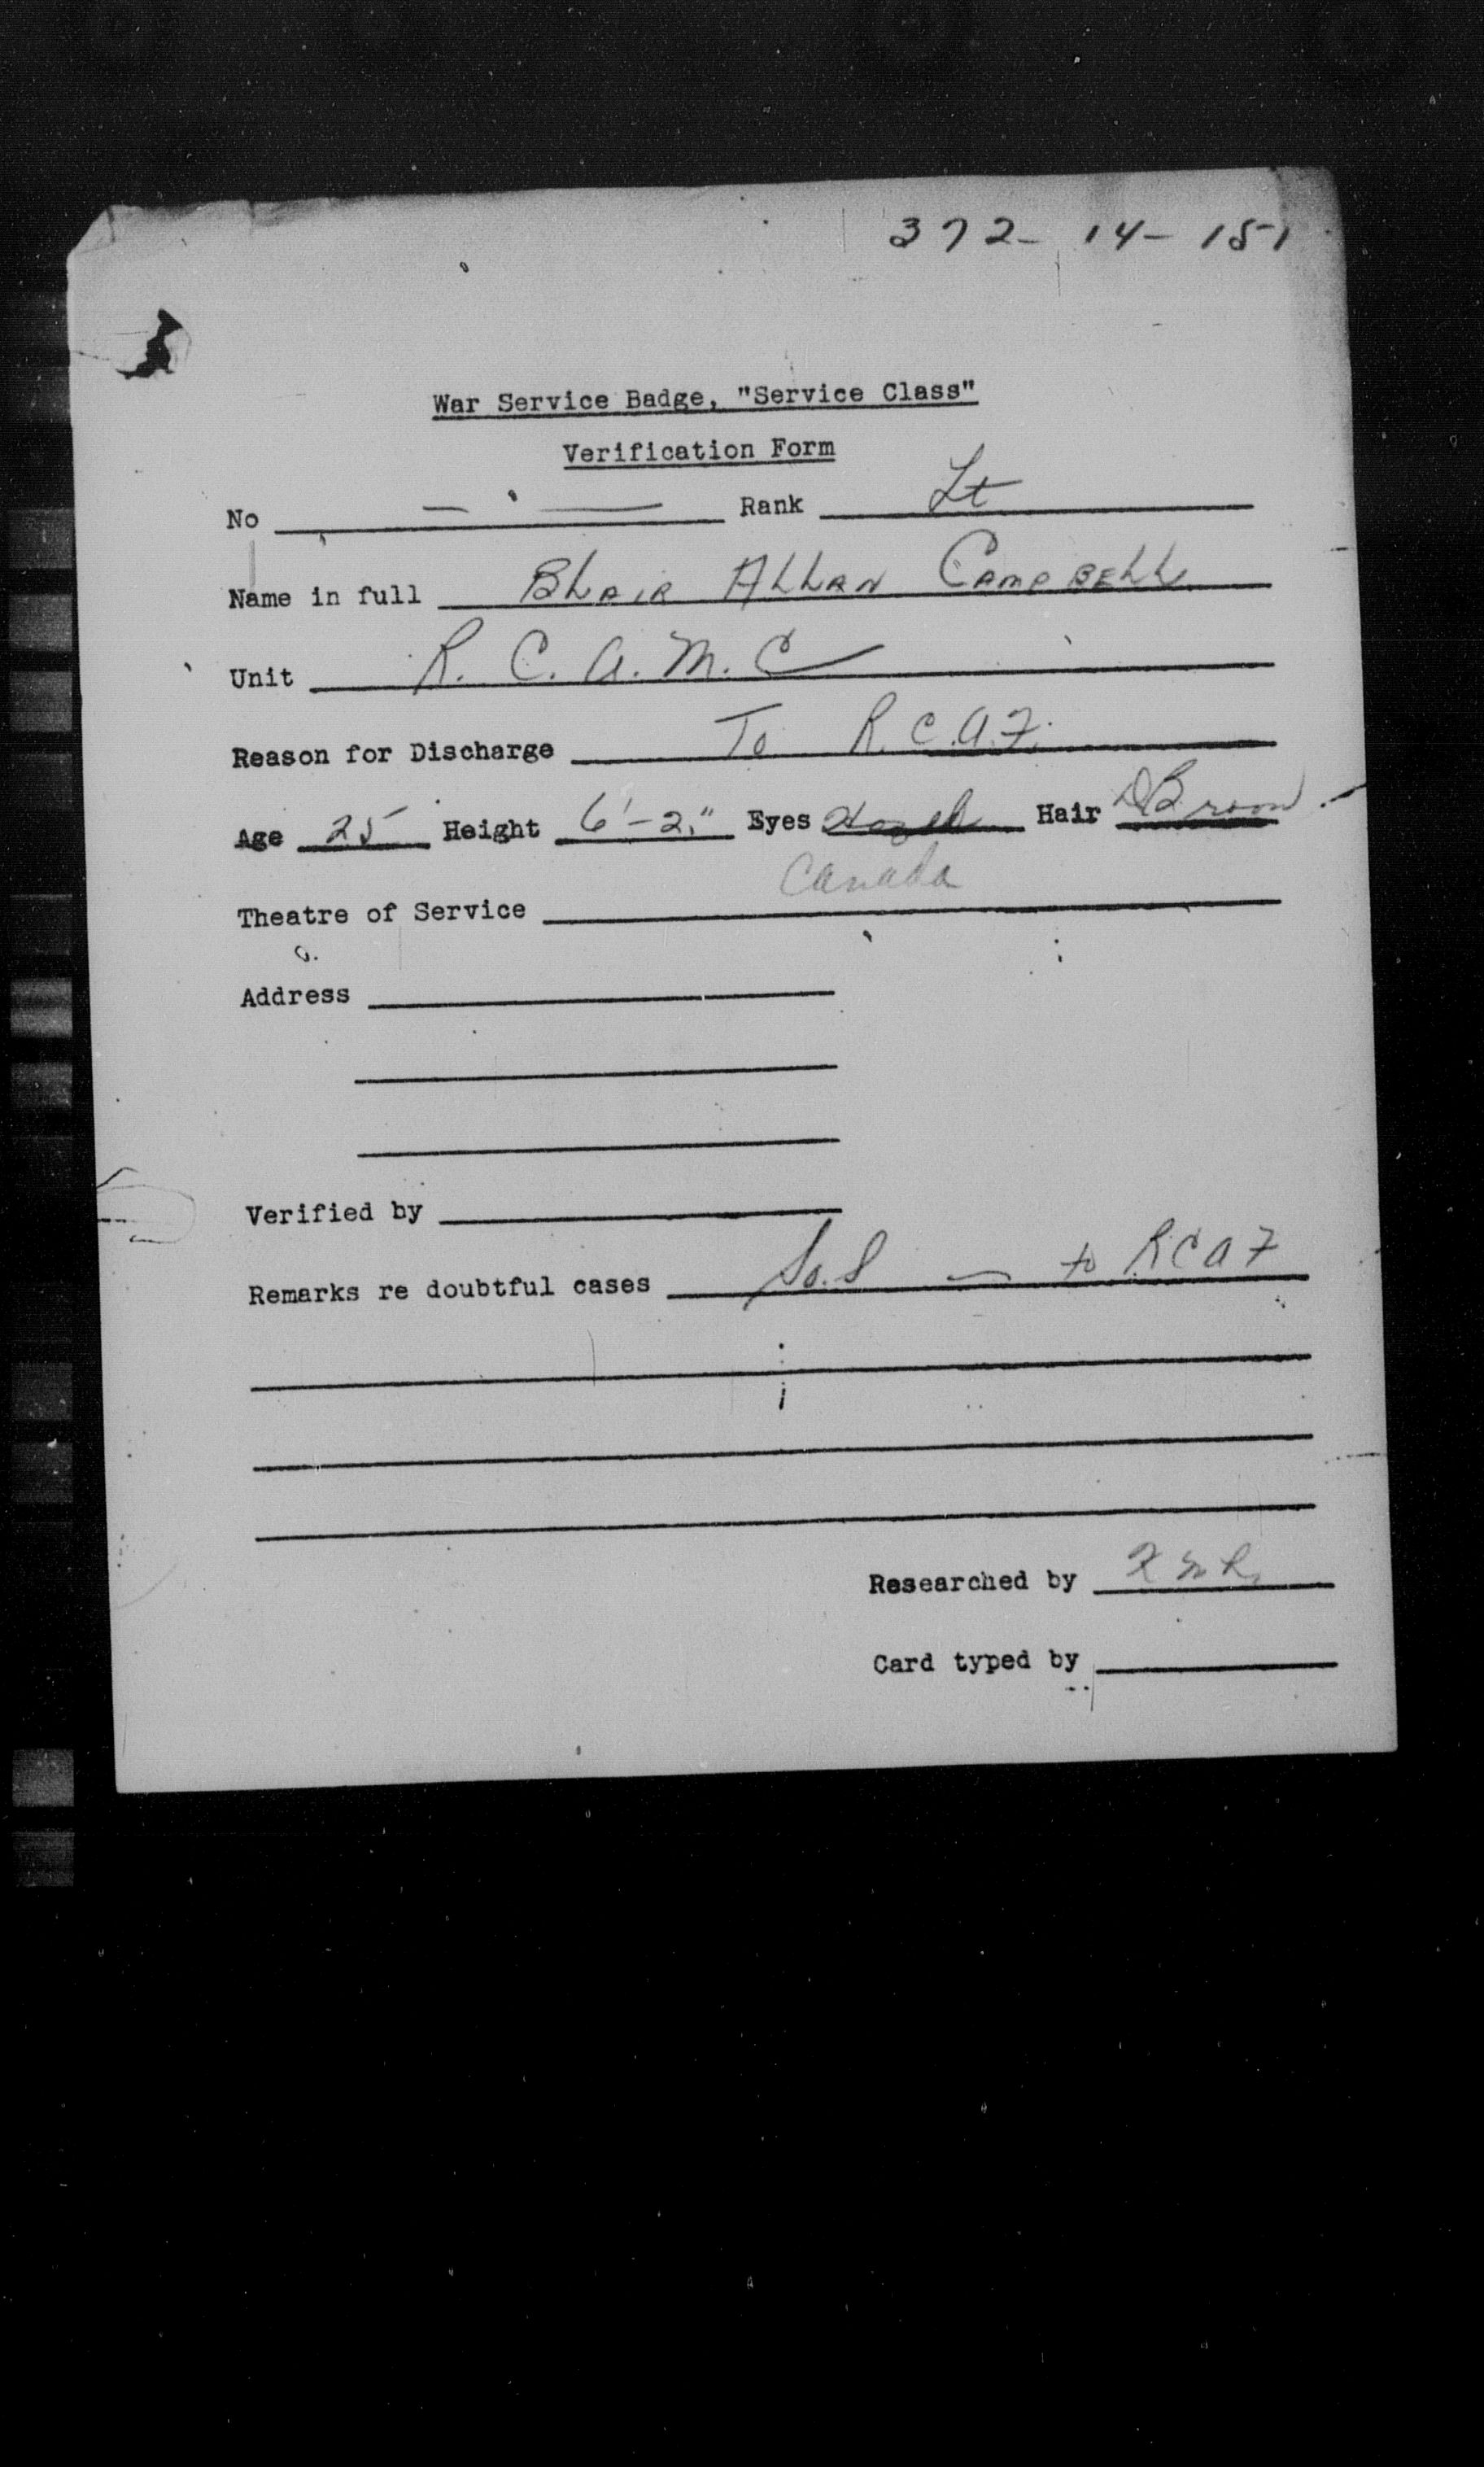 372-14-151
War Service Badge, "Service Class"
Verification Form
No — — Rank Lt
Name in full Blair Allan Campbell
Unit R. C. A. M. C
Reason for Discharge To R.C.A.F.
Age 25 Height 6'-2" Eyes Hazel Hair D Brown
Theatre of Service Canada
Address
Verified by
Remarks re doubtful cases S.o.S — to RCAF
Researched by
Card typed by